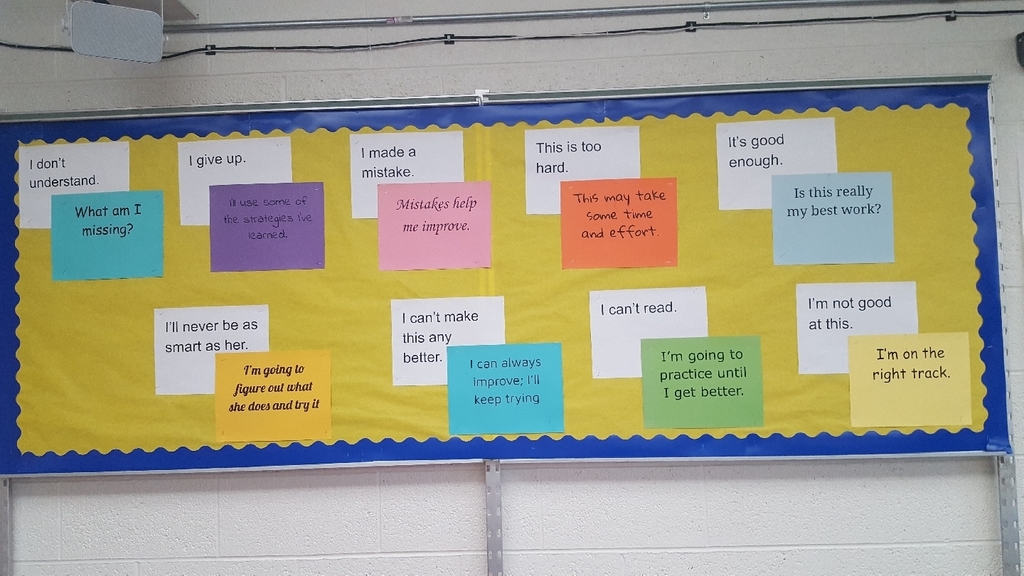 I don't
understand.
What am I
missing?
I give up.
I'll use some of
the strategies I've
learned.
I made a
mistake.
Mistakes help
me improve.
This is too
hard.
This may take
some time
and effort.
It's good
enough.
Is this really
my best work?
I'll never be as
smart as her.
I'm going to
figure out what
she does and try it
I can't make
this any
better.
I can always
improve; I'll
keep trying
I can't read.
I'm going to
practice until
I get better.
I'm not good
at this.
I'm on the
right track.